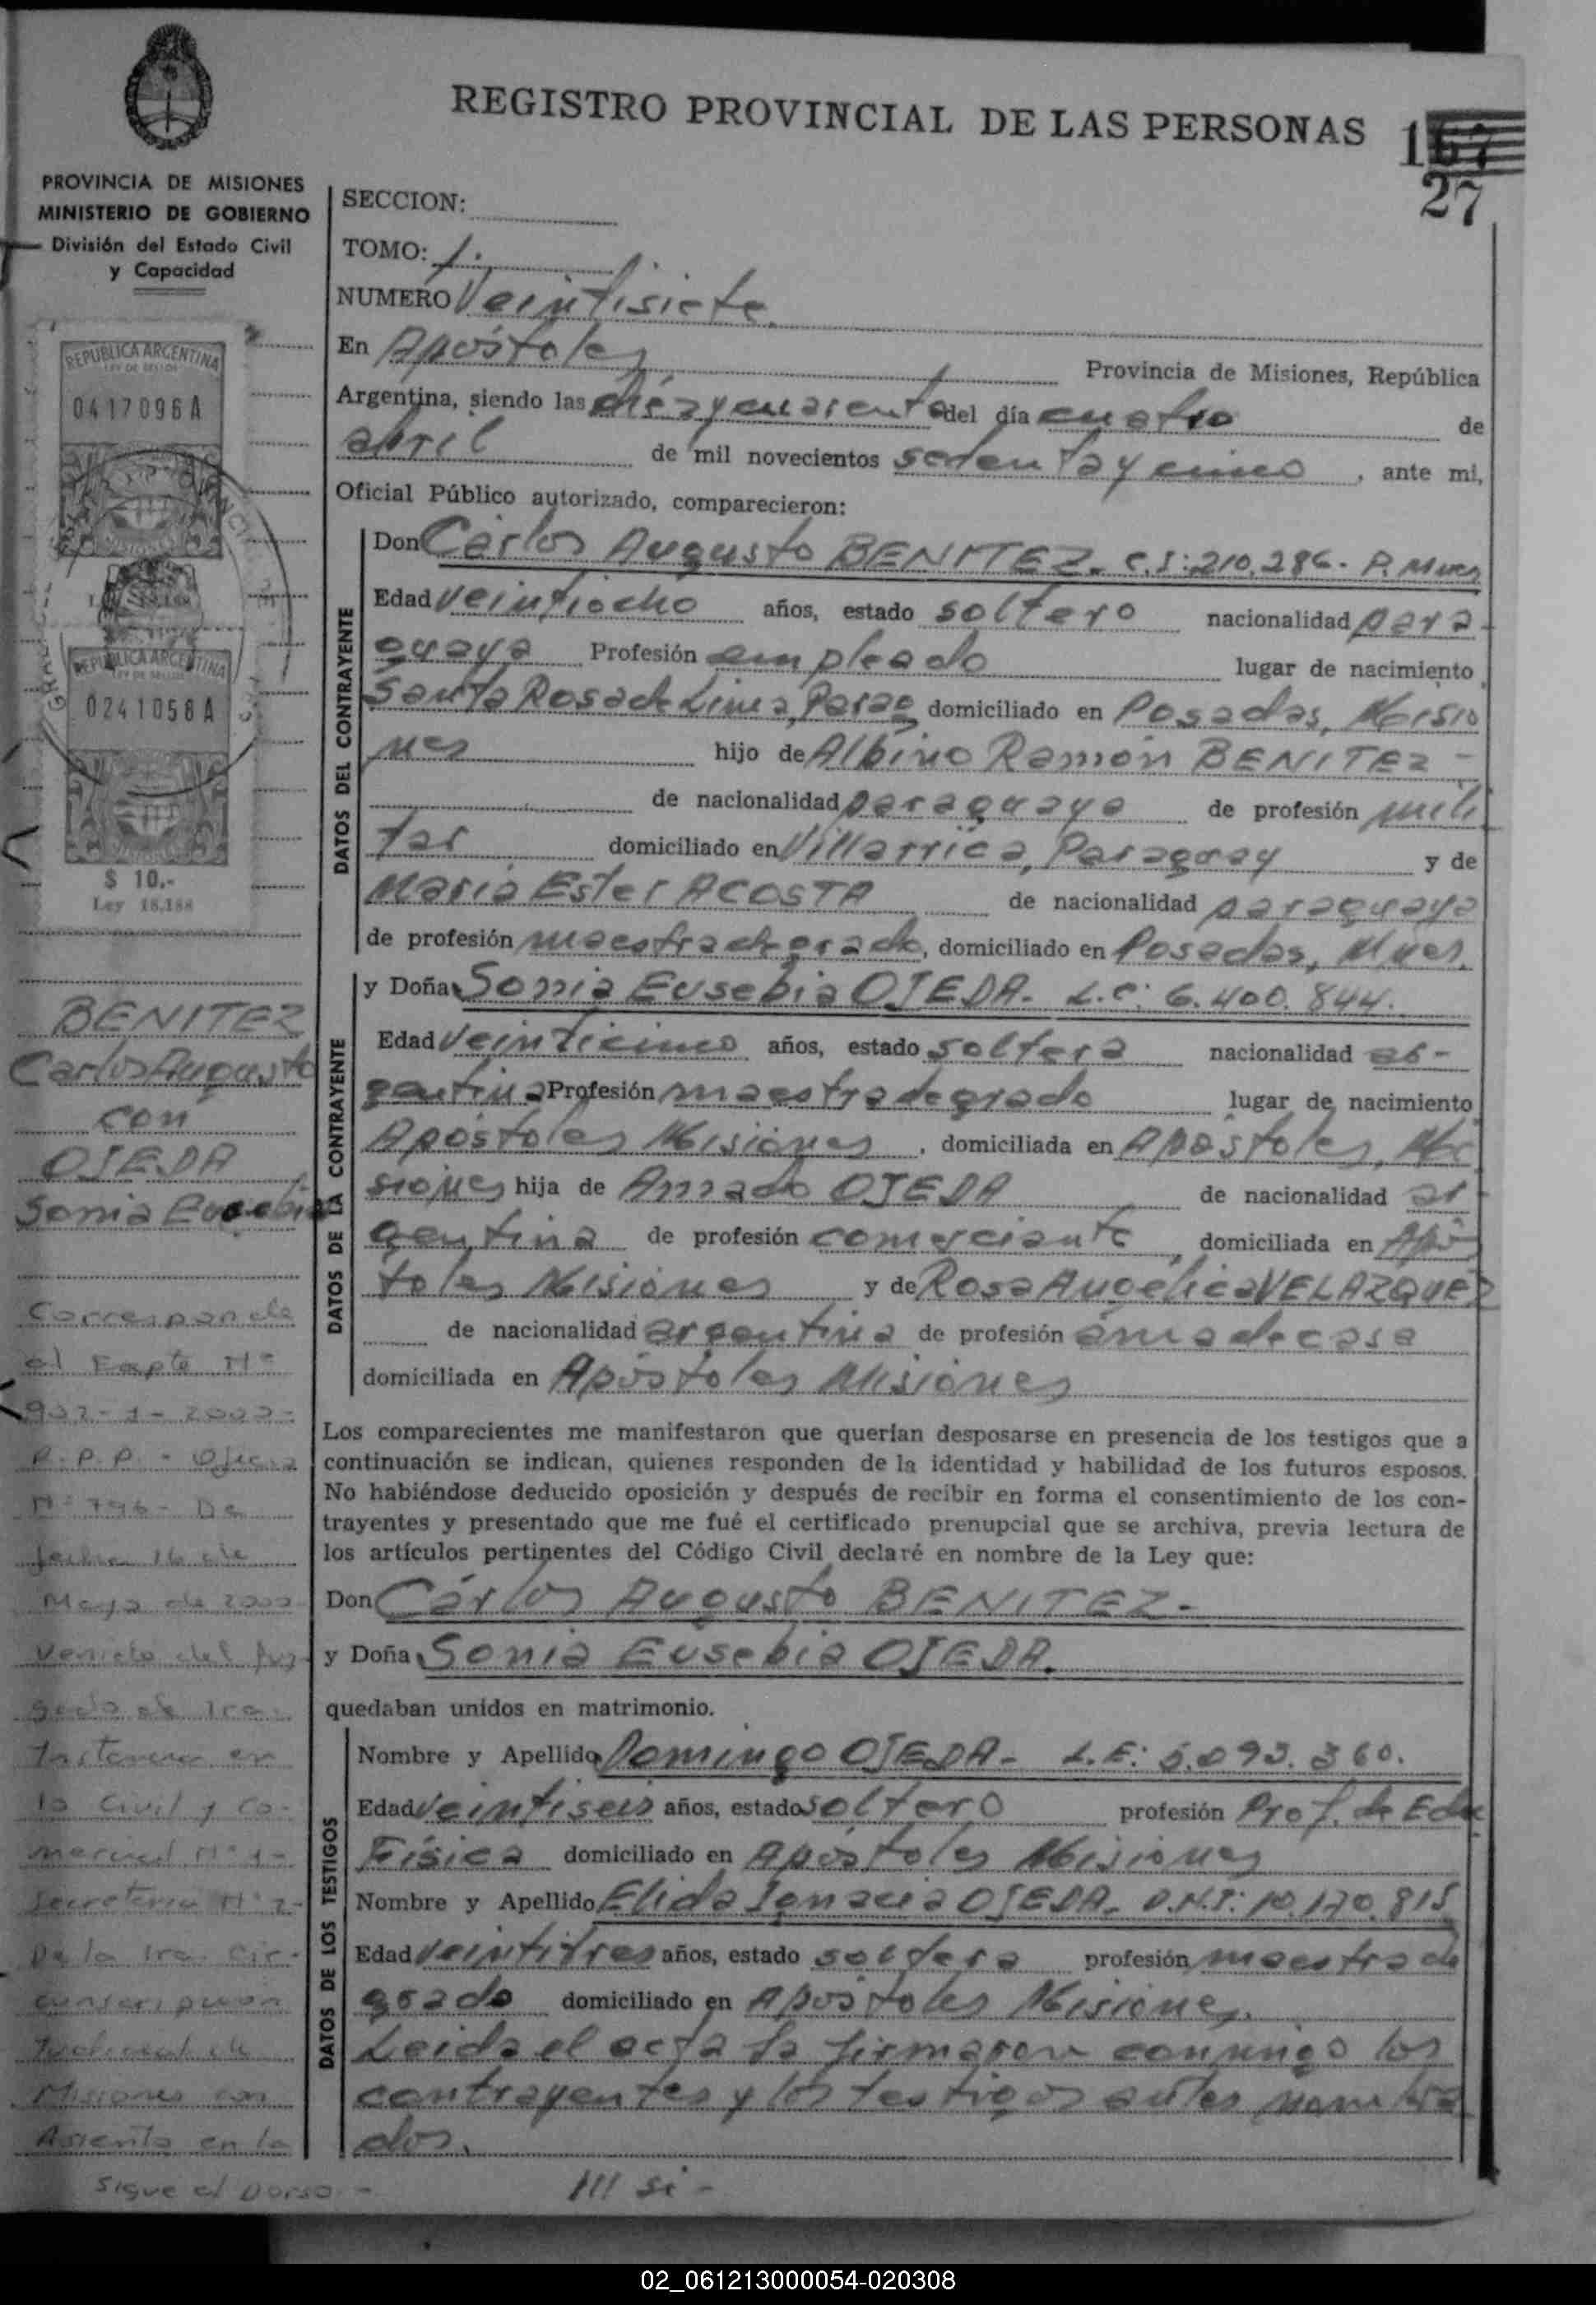 REGISTRO PROVINCIAL DE LAS PERSONAS
167
27
PROVINCIA DE MISIONES
MINISTERIO DE GOBIERNO
División del Estado Civil
y Capacidad
REPUBLICA ARGENTINA
LEY DE SELLOS
0417096A
REPUBLICA ARGENTINA
LEY DE SELLOS
0241058A
MISIONES
$ 10.-
Ley 18.188
BENITEZ
Carlos Augusto
con
OJEDA
Sonia Eusebia
Corresponde
al Expte Nº
902-1-2000-
R.P.P. - Oficio
Nº 796- De
fecha 16 de
Mayo de 2000
venido del Juz-
gado de 1ra.
Instancia en
lo Civil y Co-
mercial Nº 1-
Secretaria Nº 2-
De la 1ra. Cir-
cunscripcion
Judicial de
Misiones con
Asiento en la
Sigue al Dorso.-
SECCION:
TOMO: 1.
NUMERO Veintisiete.
En Apóstoles Provincia de Misiones, República
Argentina, siendo las diez y cuarenta del día cuatro de
abril de mil novecientos setenta y cinco, ante mi,
Oficial Público autorizado, comparecieron:
DATOS DEL CONTRAYENTE
Don Carlos Augusto BENITEZ. C.I: 210.286- P. Mnes
Edad veintiocho años, estado soltero nacionalidad para-
guaya Profesión empleado lugar de nacimiento
Santa Rosa de Lima, Parag domiciliado en Posadas, Misio
nes hijo de Albino Ramón BENITEZ -
de nacionalidad paraguaya de profesión mili
tar domiciliado en Villarrica, Paraguay y de
María Ester ACOSTA de nacionalidad paraguaya
de profesión maestra de grado, domiciliado en Posadas, Mnes.
DATOS DE LA CONTRAYENTE
y Doña Sonia Eusebia OJEDA- L.C: 6.400.844.
Edad veinticinco años, estado soltera nacionalidad ar-
gentina Profesión maestra de grado lugar de nacimiento
Apóstoles Misiones, domiciliada en Apóstoles, Mi
siones hija de Amado OJEDA de nacionalidad ar-
gentina de profesión comerciante, domiciliada en Após
toles Misiones y de Rosa Angélica VELAZQUEZ
de nacionalidad argentina de profesión ama de casa
domiciliada en Apóstoles Misiones
Los comparecientes me manifestaron que querían desposarse en presencia de los testigos que a
continuación se indican, quienes responden de la identidad y habilidad de los futuros esposos.
No habiéndose deducido oposición y después de recibir en forma el consentimiento de los con-
trayentes y presentado que me fué el certificado prenupcial que se archiva, previa lectura de
los artículos pertinentes del Código Civil declaré en nombre de la Ley que:
Don Carlos Augusto BENITEZ-
y Doña Sonia Eusebia OJEDA.
quedaban unidos en matrimonio.
DATOS DE LOS TESTIGOS
Nombre y Apellido Domingo OJEDA- L.E: 5.093.360.
Edad veintiseis años, estado soltero profesión Prof. de Educ
Física domiciliado en Apóstoles Misiones
Nombre y Apellido Elida Ignacia OJEDA- D.N.I: 10.170.815
Edad veintitres años, estado soltera profesión maestra de
grado domiciliado en Apóstoles Misiones.
Leida el acta la firmaron conmigo los
contrayentes y los testigos antes nombra
dos.
/// si -
02_061213000054-020308